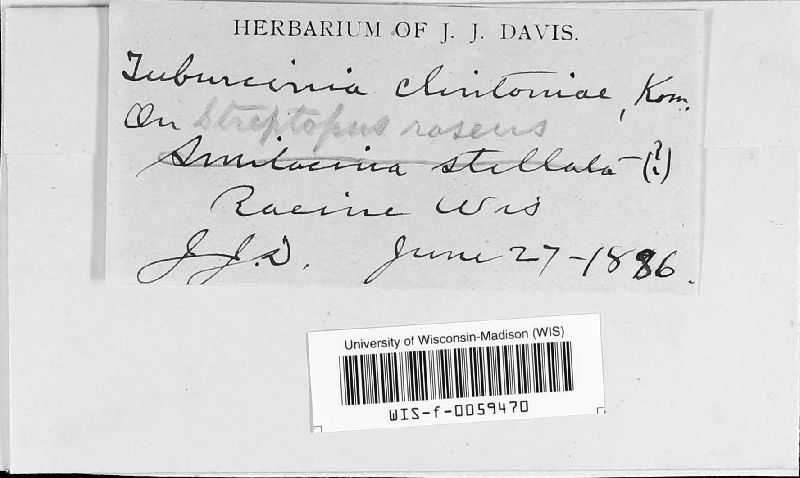 HERBARIUM OF J. J. DAVIS.
Tuburcinia clintoniae, Kom.
On Streptopus roseus
Smilacina stellata (?)
Racine Wis
J.J.D. June 27-1886.
University of Wisconsin-Madison (WIS)
WIS-f-0059470